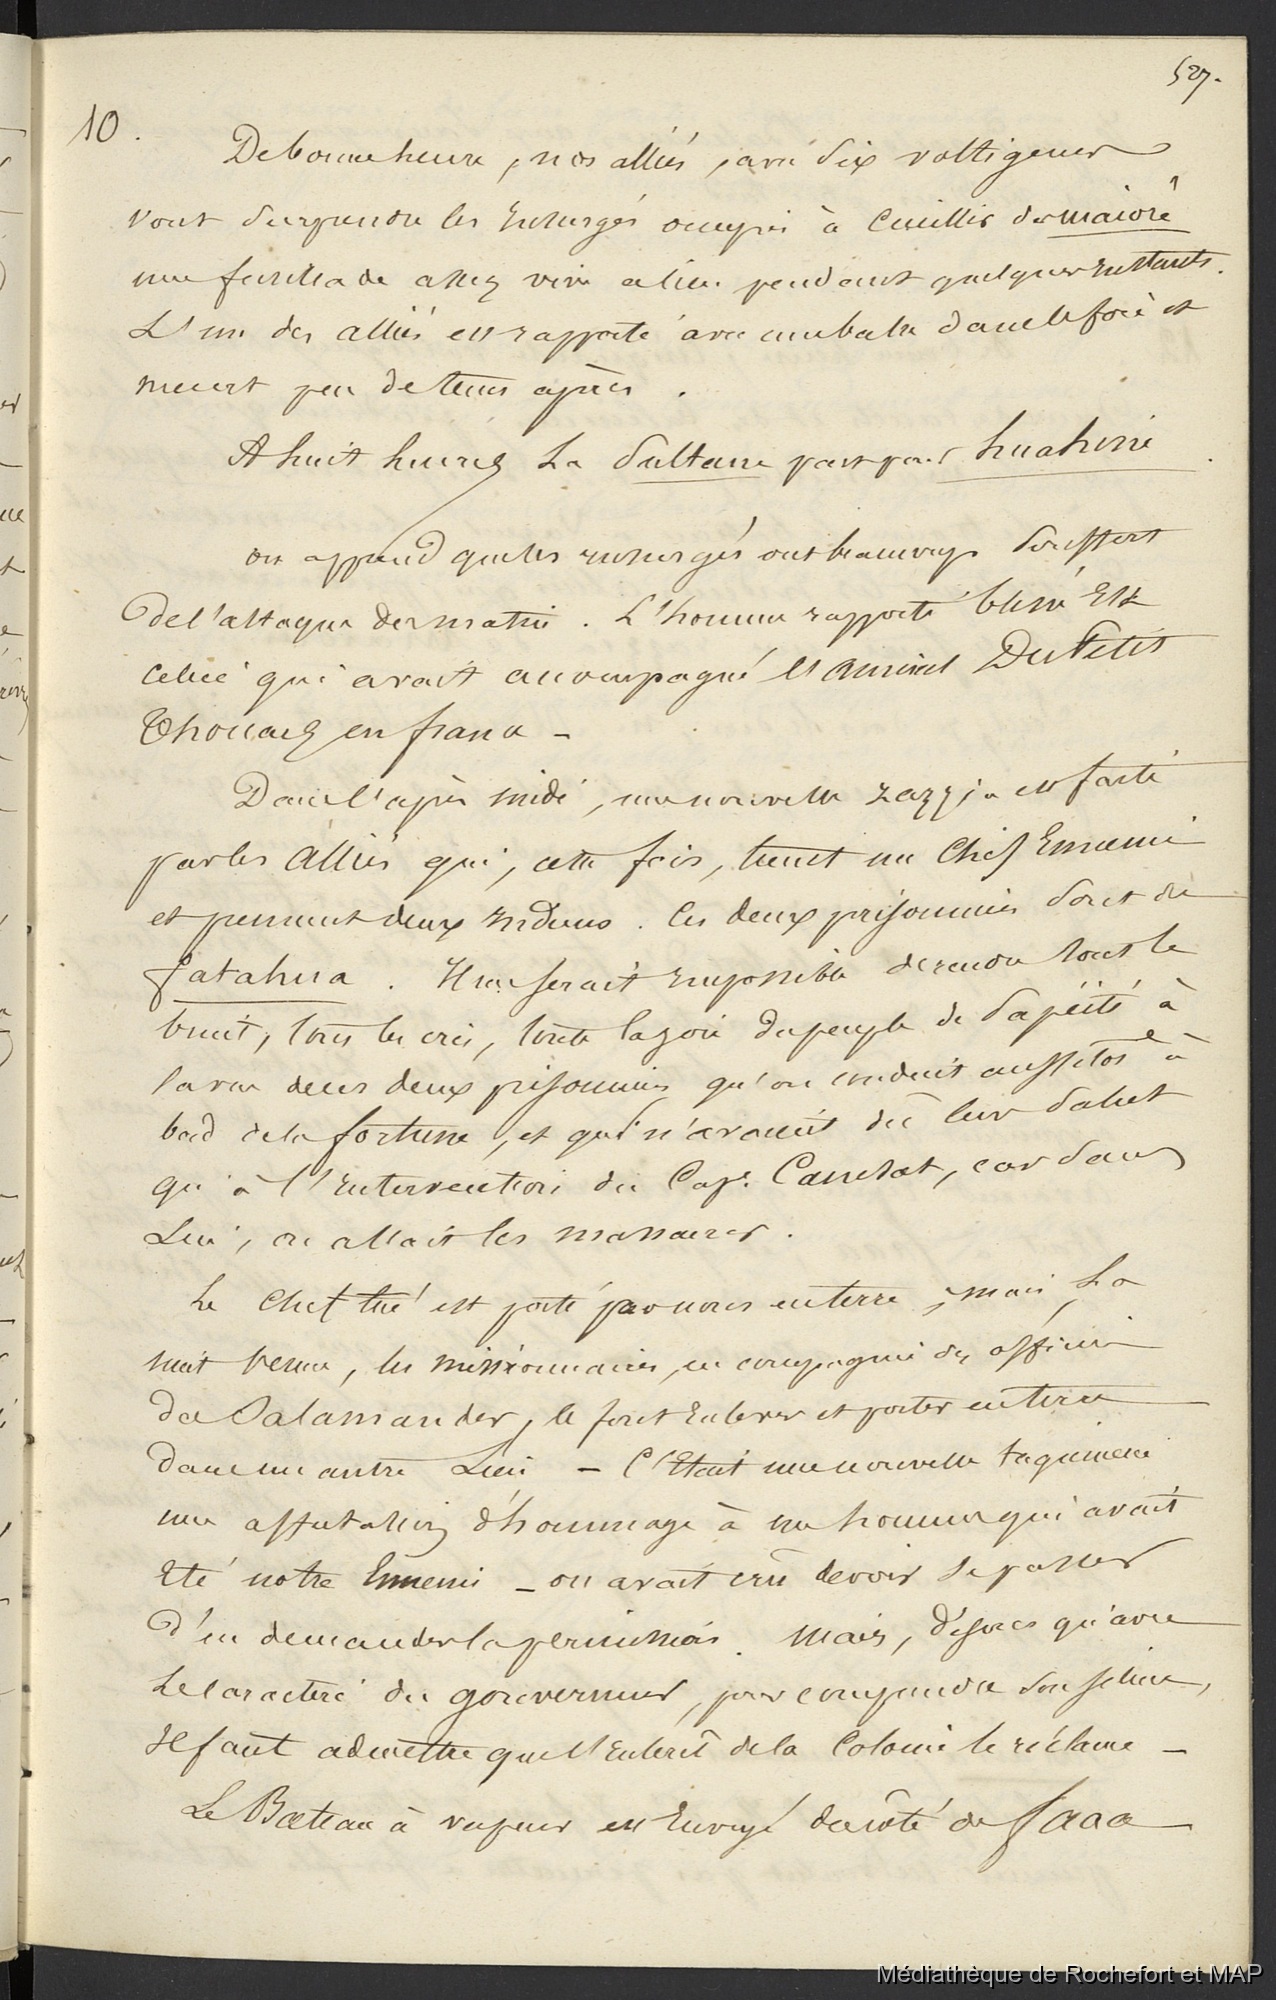 527.
10.
De bonne heure, nos alliés, avec dix voltigeurs
vont surprendre les insurgés occupés à cueillir du maiore
une fusillade assez vive a lieu pendant quelques instants.
L'un des alliés est rapporté avec une balle dans le foie et
meurt peu de tems après.
A huit heures La Sultane part pour huahine
on apprend que les insurgés ont beaucoup souffert
de l'attaque du matin. L'homme rapporté blessé Est
celui qui avait accompagné l'amiral Du Petit
Thouars en france -
Dans l'après midi, une nouvelle razzia est faite
par les alliés qui, cette fois, tuent un Chef Ennemi
et prennent deux indiens. Ces deux prisonniers sont de
fatahua. Il me serait impossible de rendre tout le
bruit, tous les cris, toute la joie du peuple de Papéïté à
la vue de ces deux prisonniers qu'on conduit aussitôt à
bord de la fortune, et qui n'avaient dû leur salut
qu'à l'intervention du Cap. , car sans
Lui, on allait les massacrer.
Le Chef tué est porté par nous en terre, mais La
nuit venue, les missionnaires, en compagnie des officiers
du Salamander, le font enlever et porter en terre
dans un autre Lieu - C'Etait une nouvelle taquinerie
une affectation d'hommage à un homme qui avait
Eté notre Ennemi - on avait crû devoir se passer
d'en demander la permission. Mais, disons qu'avec
Le caractère du gouverneur, pour comprendre son silence,
il faut admettre que l'intérêt de la Colonie le réclame -
Le Bateau à vapeur est Envoyé du côté de faaa
Médiathèque de Rochefort et MAP